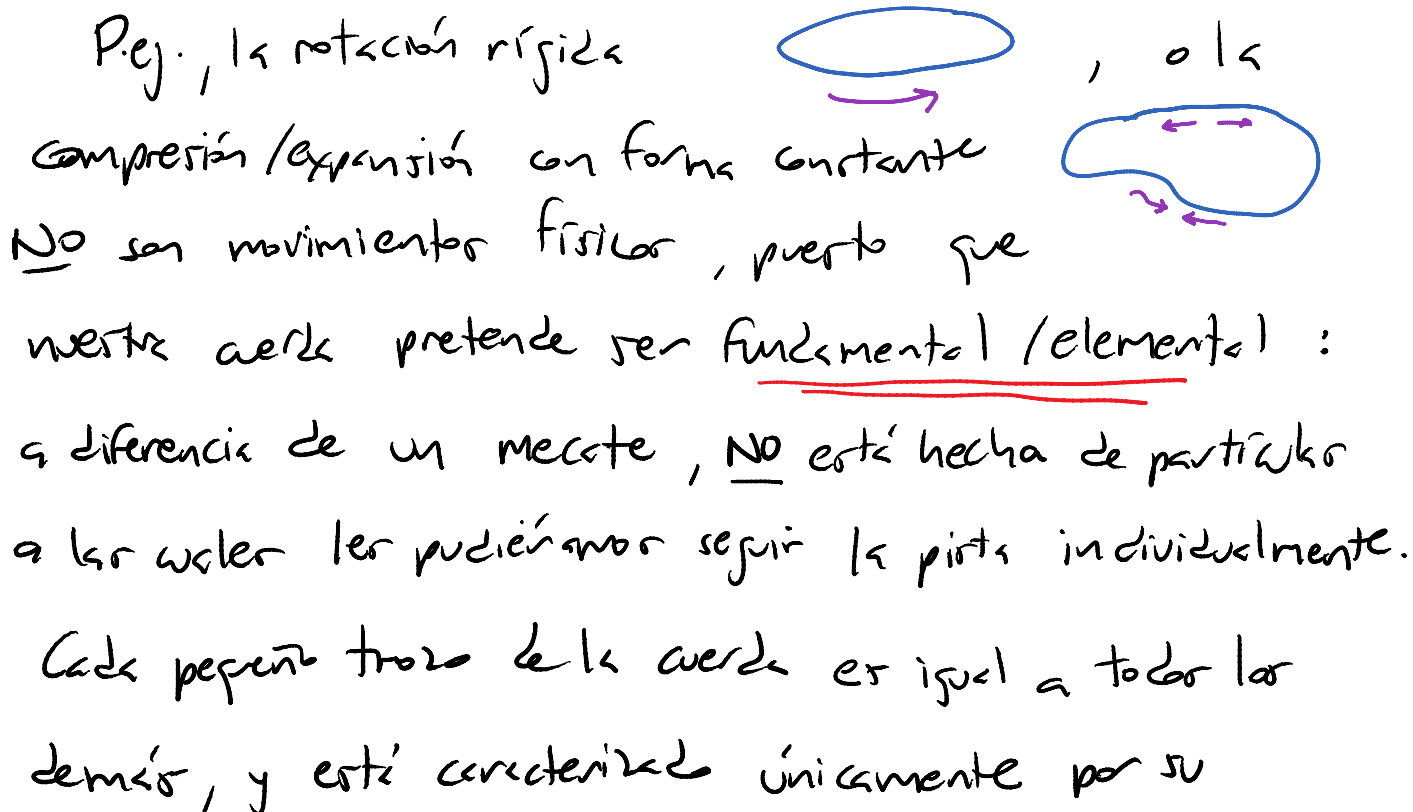 P.ej., la rotación rígida , o la
compresión/expansión con forma constante
NO son movimientos físicos, puesto que
nuestra cuerda pretende ser fundamental/elemental:
a diferencia de un mecate, NO está hecha de partículas
a las cuales les pudiéramos seguir la pista individualmente.
Cada pequeño trozo de la cuerda es igual a todos los
demás, y está caracterizado únicamente por su